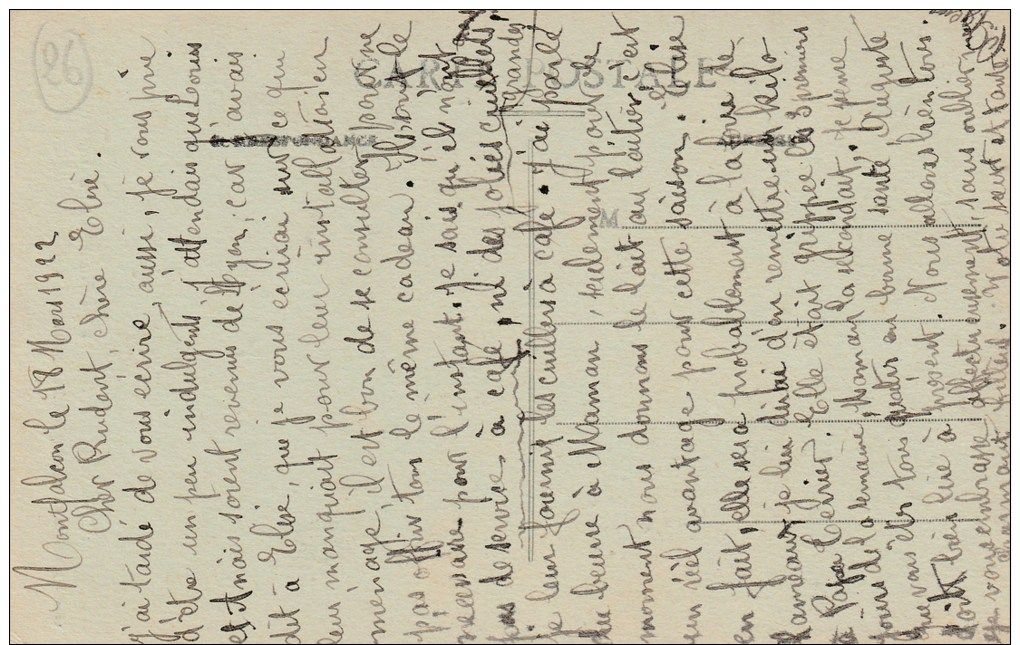 26
CARTE POSTALE
CORRESPONDANCE
M
Montfalcon le 18 Mars 1922
Cher Prudent, chère Elisé.
J'ai tardé de vous écrire aussi, je vous prie
d'être un peu indulgents j'attendais que Louis
et Anaïs soient revenus de Lyon, car j'avais
dit à Elise, que je vous écrirai sur ce qui
leur manquait pour leur installation en
ménage, il est bon de se consulter pour ne
pas offrir tous le même cadeau. Ils ont le
nécessaire pour l'instant. Je sais qu'ils n'ont
pas de service à café ni des jolies cuillers
grandes
je leur fournis les cuillers à café. J'ai parlé
du beurre à Maman, seulement pour le
moment nous donnons le lait au laitier, c'est
un réel avantage pour cette saison. Eloise
en fait, elle sera probablement à la foire de
Rameaux je lui dirai d'en remettre un kilo
à Papa Cévrier. Elle était grippée les premiers
jours de la semaine, Maman la soignait. Je pense
que vous êtes tous quatre en bonne santé Auguste
doit bien lire à présent. Nous allons bien tous.
Je vous embrasse affectueusement, sans oublier
filleul. Votre sœur et tante